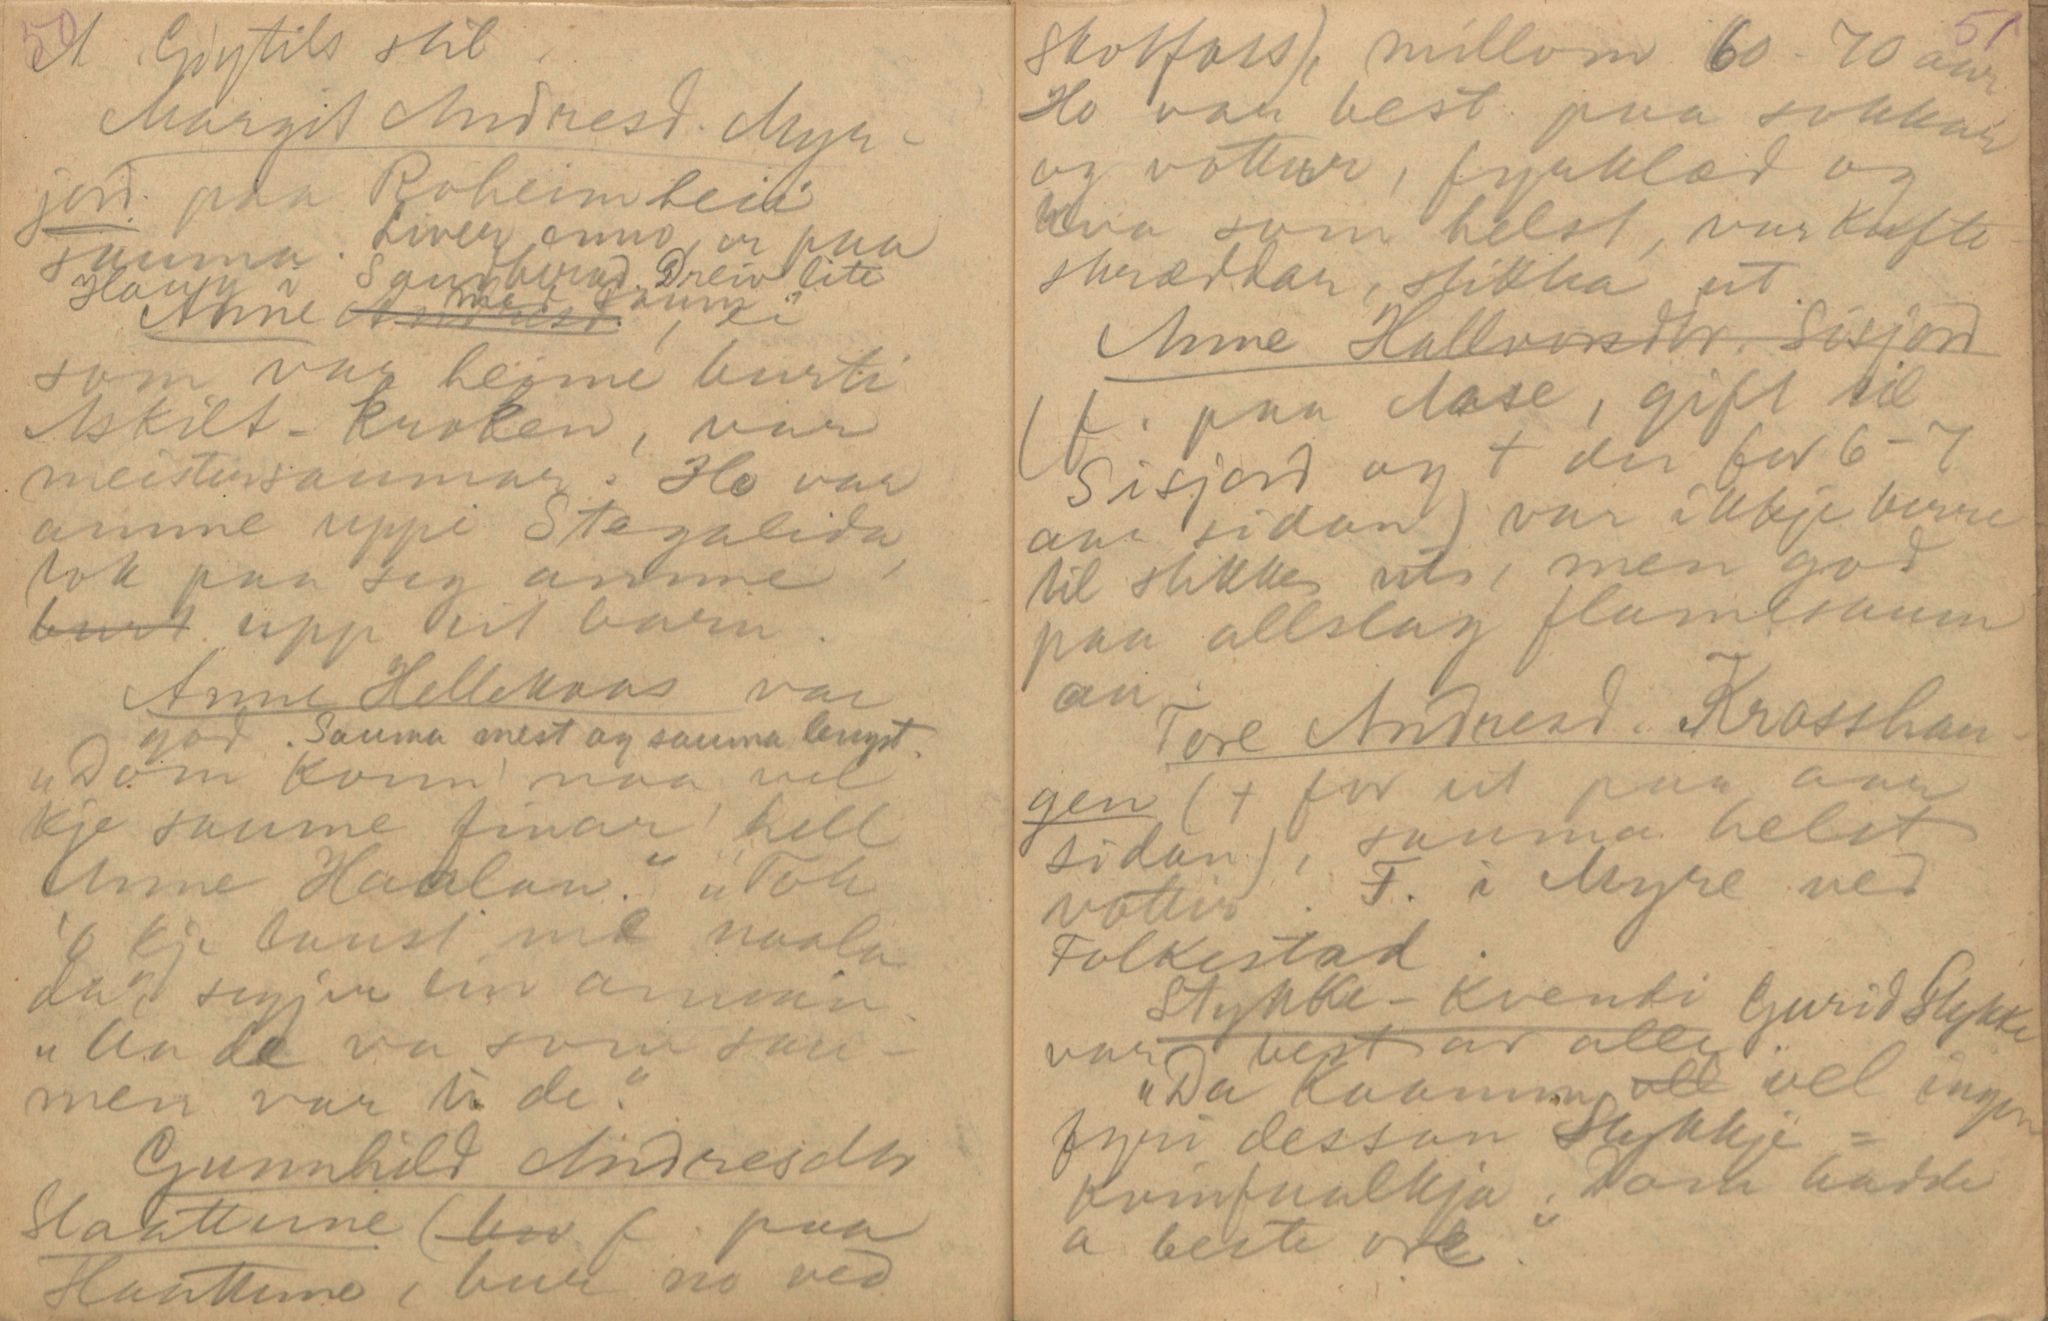 50
A Gøytils stil.
Margit Andresd. Myr-
jord. paa Roheimheii
sauma. Liver enno, er paa
Haug i Sauherad. Dreiv lite
med saum
Anne Andresd., ei
som var heime burti
Askilt-Kroken, var
meistersaumar. Ho var
amme uppi Stegalida,
tok paa seg amme
burt upp eit barn.
Anne Hellekaas var
god. Sauma mest og sauma lengst.
"Dom konn' naa vel
kje saume finar' hell
Anne Haalan." "Tok
'o kje laust me naala
da", segjer ein annan.
"Aa de va som sau-
men var ti de."
Gunnhild Andresdtr
Slaattune (bur f. paa
Slaattune, bur no ved
51
Skotfoss), millom 60-70 aar
Ho var best paa sokkar
og vottur, fyrklæd og
kva som helst, var kofte-
skræddar, stikka ut.
Anne Hallvorsdtr. Sisjord
(f. paa Aase, gift til
Sisjord og + der for 6-7
aar sidan) var ikkje berre
til stikke ut, men god
paa allslag flamesaum
au.
Tore Andresd. Krosshau-
gen (+ for eit par aar
sidan), sauma helst
vottur. F. i Myre ved
Folkestad.
Stykke-Kvendi Gurid Stykke
var best av alle.
"Da kaamm all vel ingen
fyri dessan Stykkje-
kvinfualkja. Dom hadde
a beste ore".